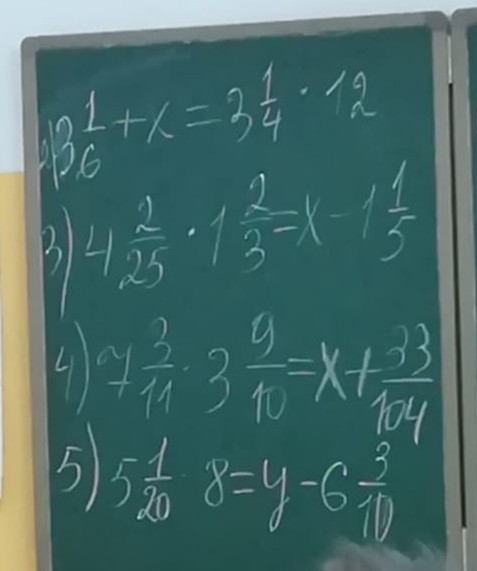 3 1/6 + x = 3 1/4 · 12
3) 4 2/25 · 1 2/3 = x - 1 1/5
4) 7 3/11 · 3 9/10 = x + 33/104
5) 5 1/20 · 8 = y - 6 3/10